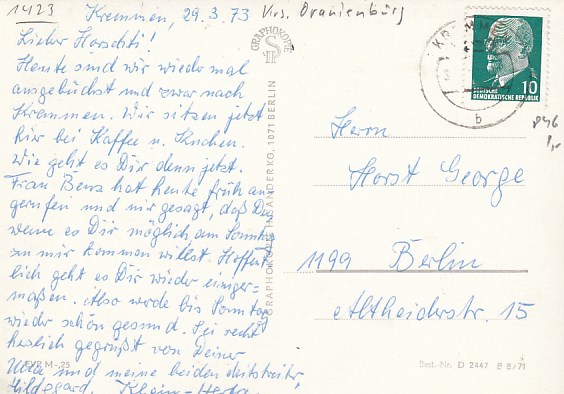 1423
Kremmen, 29.3.73 Krs. Oranienburg
Lieber Horschti!
Heute sind wir wieder mal
ausgebüchst und zwar nach
Kremmen. Wir sitzen jetzt
hier bei Kaffee u. Kuchen.
Wie geht es Dir denn jetzt.
Frau Benz hat heute früh an-
gerufen und mir gesagt, daß Du
wenn es Dir möglich am Sonntag
zu mir kommen willst. Hoffent-
lich geht es Dir wieder einiger-
maßen. Also werde bis Sonntag
wieder schön gesund. Sei recht
herzlich gegrüßt von Deiner
und meine beiden Mitstreiter,
Hildegard. Klein-Herta
GRAPHOKOPIE
GRAPHOKOPIE H. SANDER KG, 1071 BERLIN
DEUTSCHE
DEMOKRATISCHE REPUBLIK
10
b
Herrn
Horst George
1199 Berlin
Altheiderstr. 15
M-25
Best.-Nr. D 2447 B 8/71